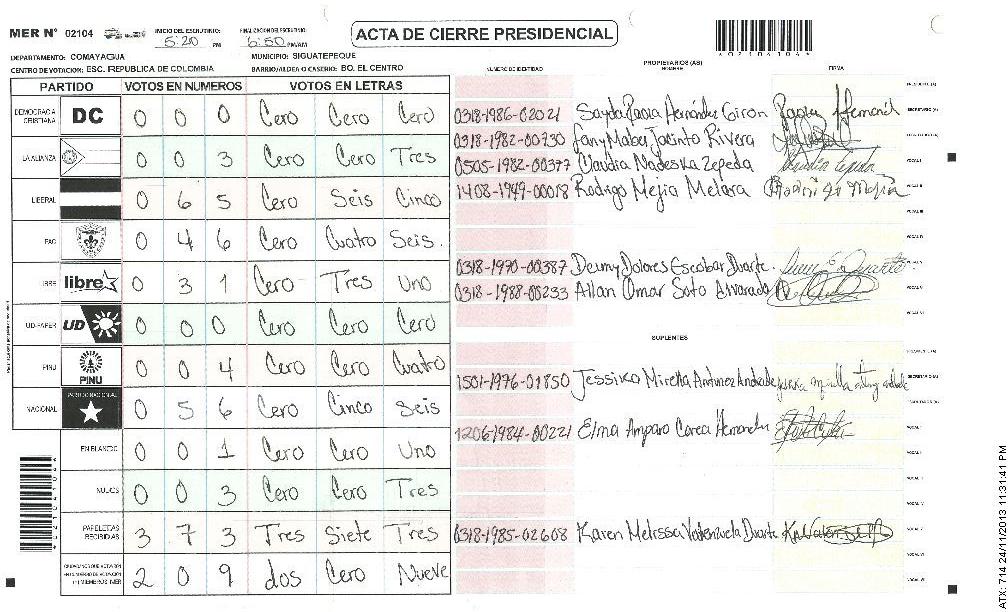 MER N° 02104 INICIO DEL ESCRUTINIO: 5:20 PM FINALIZACION DEL ESCRUTINIO: 6:50 PM/AM
ACTA DE CIERRE PRESIDENCIAL
*02104104*
DEPARTAMENTO: COMAYAGUA MUNICIPIO: SIGUATEPEQUE
CENTRO DE VOTACION: ESC. REPUBLICA DE COLOMBIA BARRIO/ALDEA O CASERIO: BO. EL CENTRO
NUMERO DE IDENTIDAD PROPIETARIOS (AS) NOMBRE FIRMA
PARTIDO VOTOS EN NUMEROS VOTOS EN LETRAS
DEMOCRACIA CRISTIANA DC 0 0 0 Cero Cero Cero
LA ALIANZA 0 0 3 Cero Cero Tres
LIBERAL 0 6 5 Cero Seis Cinco
PAC 0 4 6 Cero Cuatro Seis.
LIBRE libre 0 3 1 Cero Tres Uno
UD-FAPER UD 0 0 0 Cero Cero Cero
PINU PINU 0 0 4 Cero Cero Cuatro
NACIONAL PARTIDO NACIONAL 0 5 6 Cero Cinco Seis
EN BLANCO 0 0 1 Cero Cero Uno
NULOS 0 0 3 Cero Cero Tres
PAPELETAS RECIBIDAS 3 7 3 Tres Siete Tres
CIUDADANOS QUE VOTARON 2 0 9 dos Cero Nueve
0318-1986-02021 Sayda Paola Hernández Giron
SECRETARIO (A)
0318-1982-00730 Jany Mabel Jacinto Rivera
0505-1982-00377 Claudia Nadeska Zepeda
VOCAL I
1408-1949-00018 Rodrigo Mejia Melara
VOCAL II
VOCAL III
VOCAL IV
0318-1970-00387 Deimy Dolores Escobar Duarte
VOCAL V
0318-1988-00233 Allan Omar Soto Alvarado
SUPLENTES
1501-1976-01850 Jessika Miretta Antunez Andrade
SECRETARIO (A)
1206-1984-00221 Elma Amparo Carea Hernandez
VOCAL I
VOCAL II
VOCAL III
0318-1985-02608 Karen Melissa Valenzuela Duarte
VOCAL V
VOCAL VI
ATX: 714 24/11/2013 11:31:41 PM